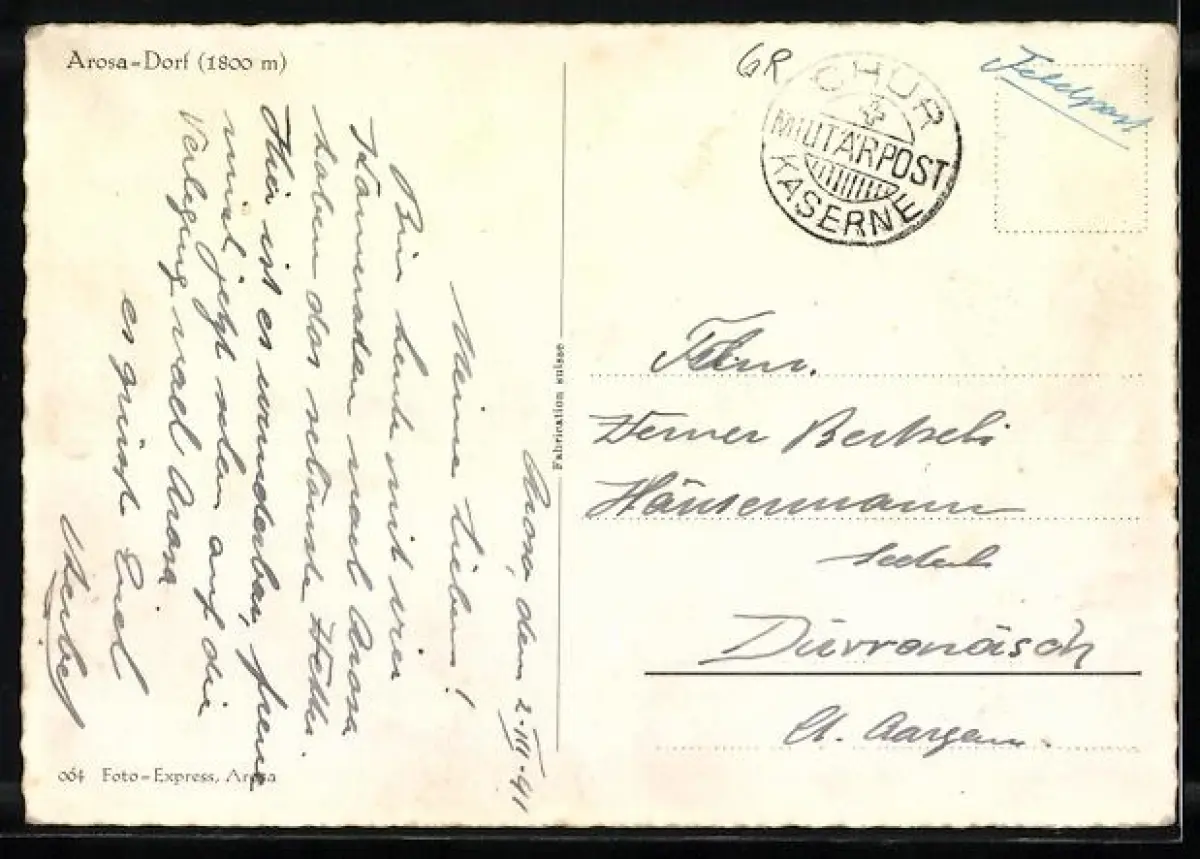 Arosa-Dorf (1800 m)
Arosa, dem 2.III.41
Meine Lieben!
Bin heute mit vier
Kameraden nach Arosa
haben das schönste
Hier ist es wunderbar, freue
mich jetzt schon auf die
Verlegung nach Arosa
es grüsst Euch
064 Foto-Express, Arosa
Fabrication suisse
GR
CHUR
MILITÄRPOST
KASERNE
Feldpost
Fam.
Werner
Häusermann
Dürrenäsch
Kt. Aargau.